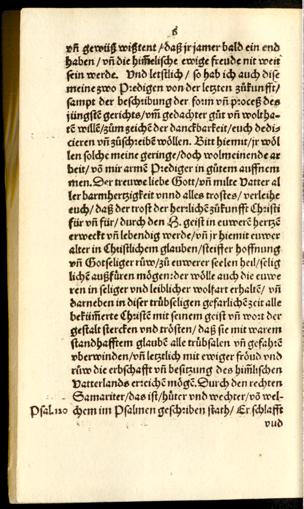 8
vñ gewüß wißtent / daß jr jamer bald ein end
haben / vñ die him̃elische ewige freude nit weit
sein werde. Vnd letstlich / so hab ich auch dise
meine zwo Predigen von der letzten zůkunfft /
sampt der beschribung der form vñ proceß des
jüngstẽ gerichts / vm̃ gedachter gůt vñ wolthatẽ
willẽ / zům zeichẽ der danckbarkeit / euch dedicieren
vñ zůschribẽ wöllen. Bitt hiemit / jr wöllen
solche meine geringe / doch wolmeinende arbeit /
võ mir armẽ Prediger in gůtem auffnemmen.
Der treuwe liebe Gott / vñ milte Vatter aller
barmhertzigkeit vnnd alles trostes / verleihe
euch / daß der trost der herrlichẽ zůkunfft Christi
für vñ für / durch den H. geist in euwerẽ hertzẽ
erweckt vñ lebendig werde / vñ jr hiemit euwer
alter in Christlichem glauben / steiffer hoffnung
vñ Gotseliger růw / zů euwerer seelen heil / seligklichẽ
außfüren mögen: der wölle auch die euweren
in seliger vnd leiblicher wolfart erhaltẽ / vñ
darneben in diser trübseligen gefarlichẽ zeit alle
bekům̃erte Christẽ mit seinem geist vñ wort der
gestalt stercken vnd trösten / daß sie mit warem
standhafftem glaubẽ alle trübsalen vñ gefahrẽ
vberwinden / vñ letzlich mit ewiger fröud vnd
růw die erbschafft vñ besitzung des him̃lischen
Vatterlands erreichẽ mögẽ. Durch den rechten
Samariter / das ist / hůter vnd wechter / võ welchem
Psal.120 im Psalmen geschriben stath / Er schlafft
vnd